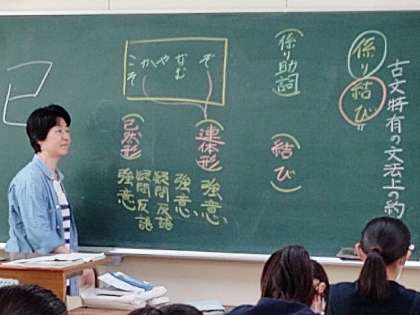 係り結び=
古文特有の文法上の約
（係り助詞）
ぞ
なむ
や
か
こそ
（結び）
（連体形）
（已然形）
強意
強意
疑問反語
疑問反語
強意
已